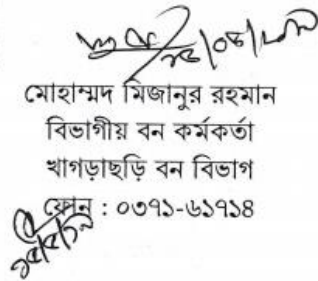 মোহাম্মদ মিজানুর রহমান
বিভাগীয় বন কর্মকর্তা
খাগড়াছড়ি বন বিভাগ
ফোন : ০৩৭১-৬১৭১৪